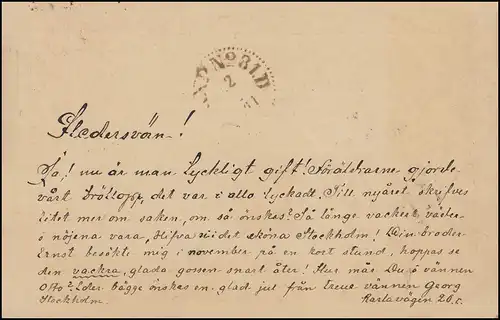 PKXP No 81 D
2
Hedersvän!
Ja, ! nu är man lyckligt gift! Föräldrarne gjorde
vårt bröllopp, det var i allo lyckadt. Till nyåret skrifves
litet mer om saken, om så önskas? Så länge vackert väder
i nöjena vara, skön Stockholm! Din broder
Ernst besökte mig i november på en kort stund, hoppas se
den vackra, glada gossen snart åter! Hur mås Du, o vännen
Otto? Eder bägge önskas en glad jul från Eder vännen Georg
Stockholm. Karlavägen 20.c.